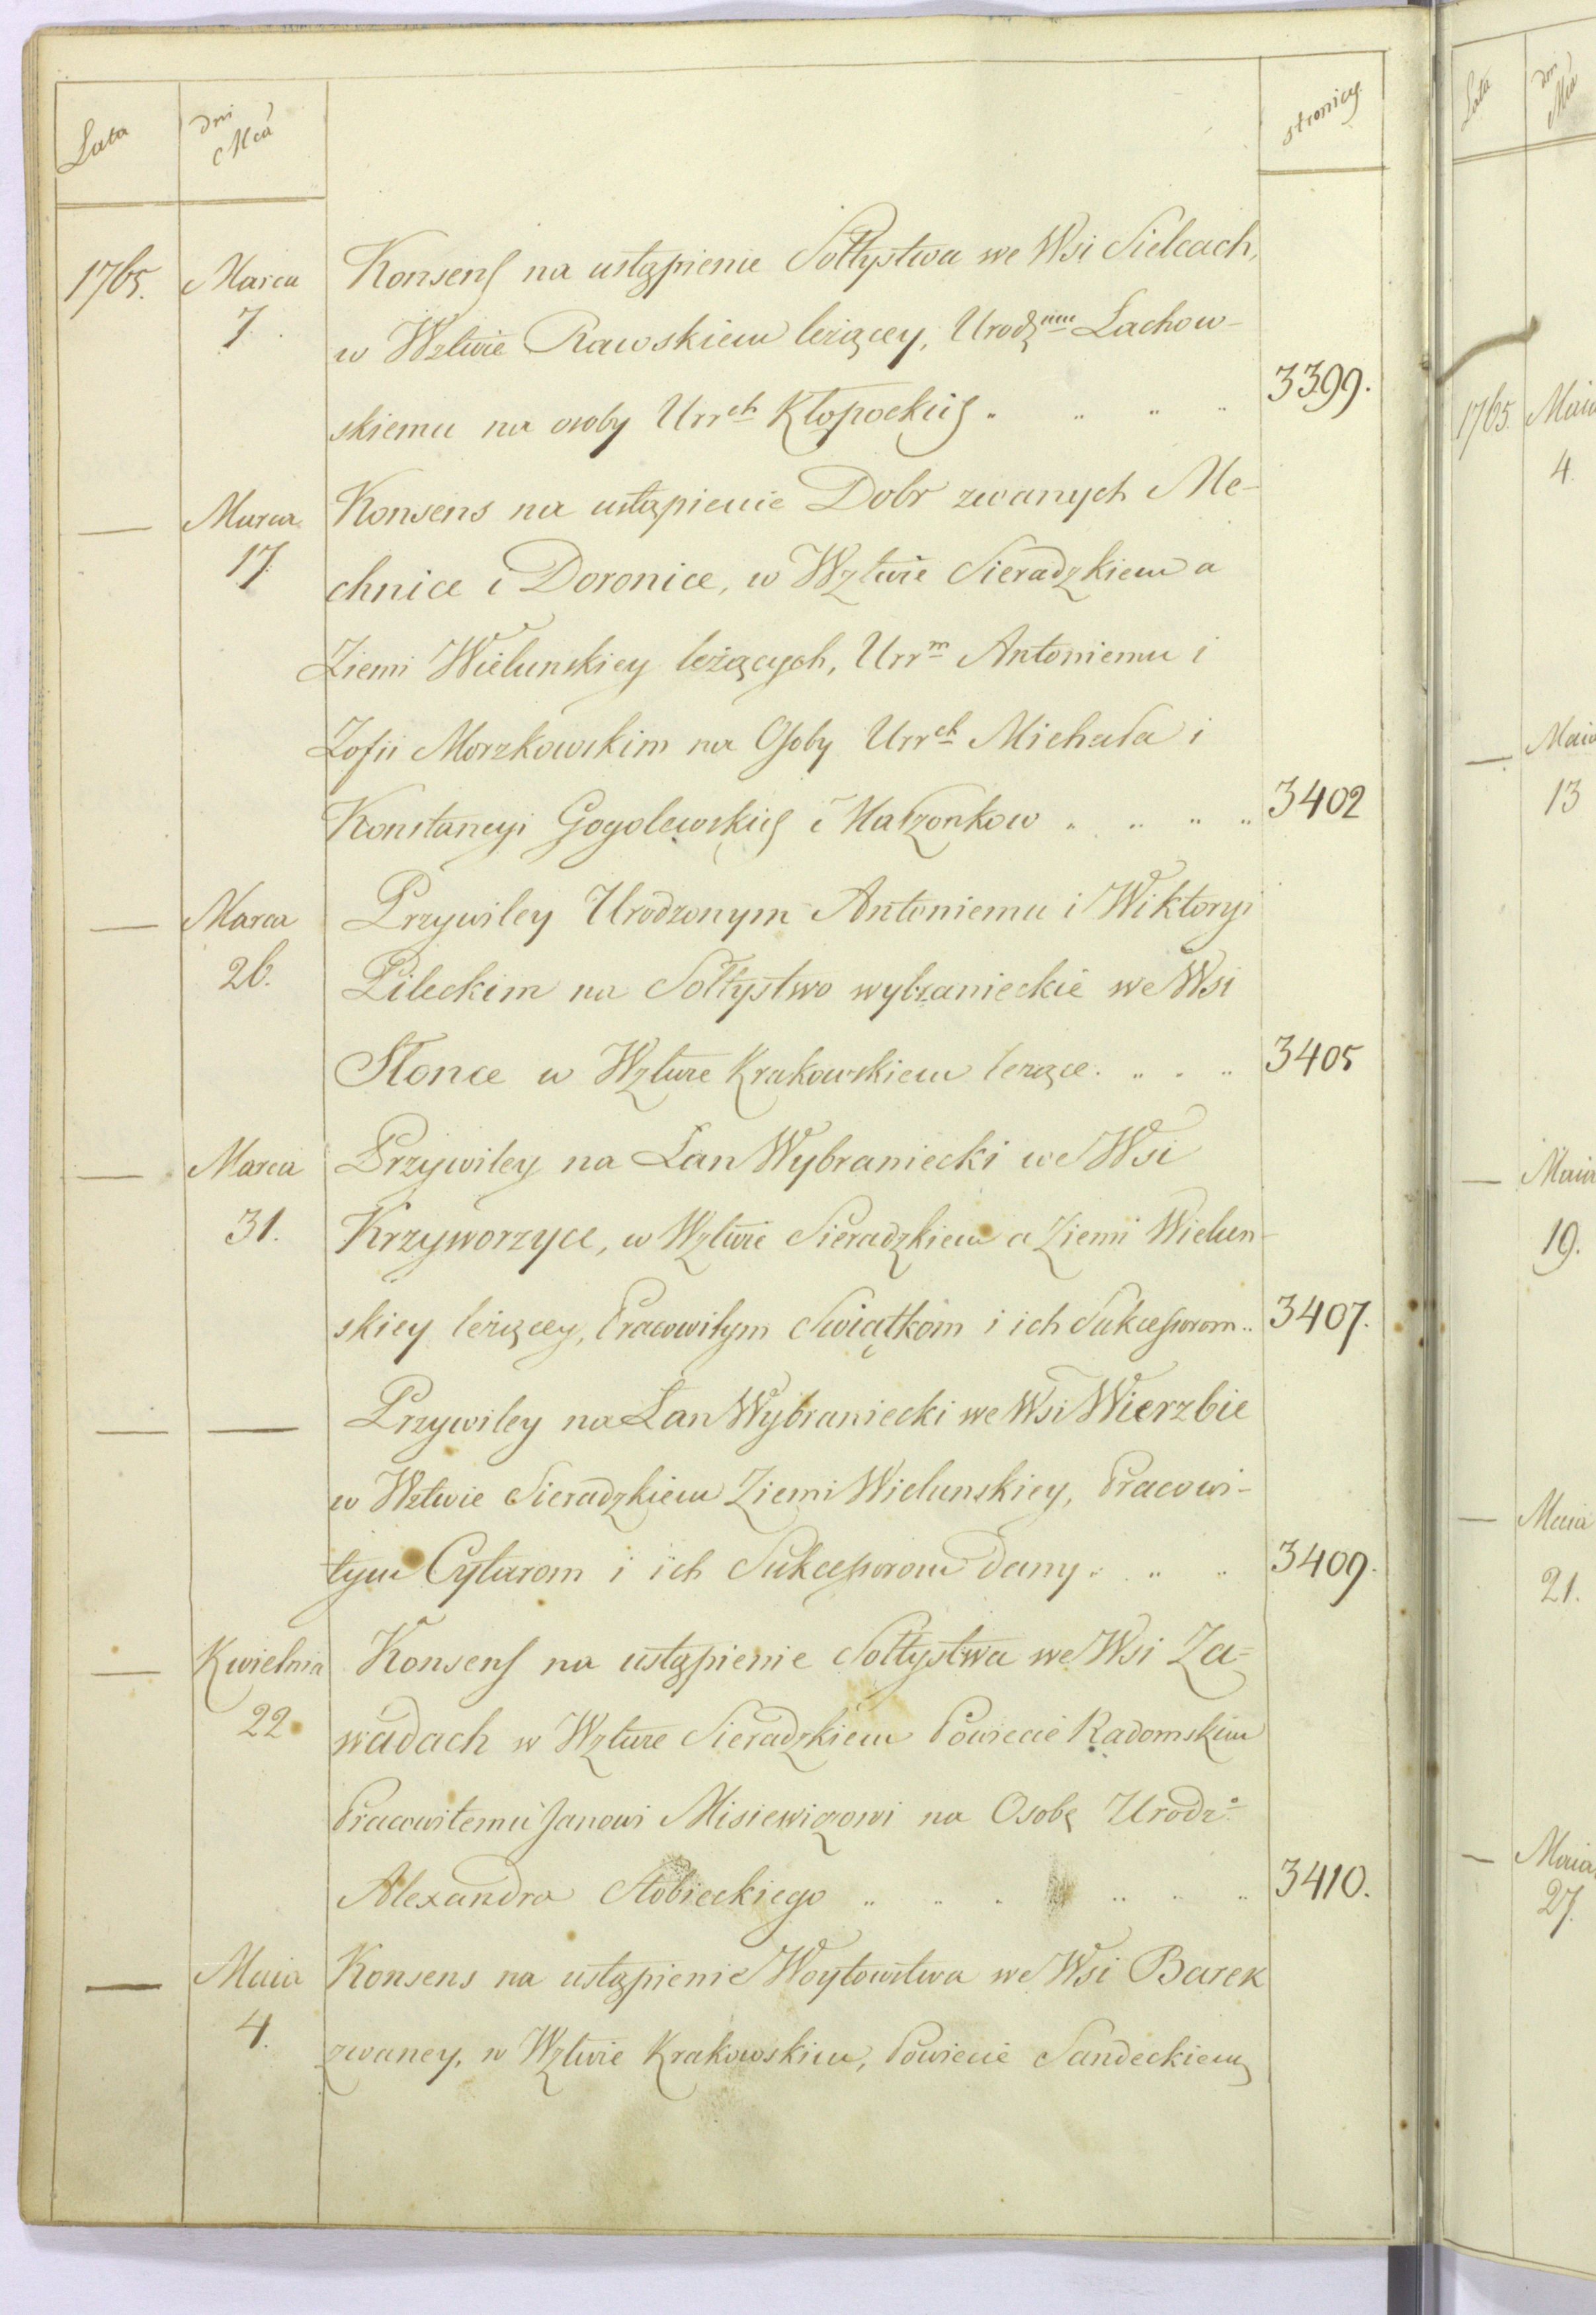 Lata
dni
Mca
stronicy.
1765.
Marca
7.
Konsens na ustąpienie Sołtystwa we Wsi Sielcach,
w Wztwie Rawskiem leżącey, Urodz<sup>nm</sup> Lachow-
skiemu na osoby Urr<sup>ch</sup> Kłopockich
3399.
—
Marca
17.
Konsens na ustąpienie Dobr zwanych Me-
chnice i Doronice, w Wztwie Sieradzkiem a
Ziemi Wielunskiey leżących, Urr<sup>m</sup> Antoniemu i
Zofii Morzkowskim na Osoby Urr<sup>ch</sup> Michała i
Konstancyi Gogolewskich i Małzonkow
3402
—
Marca
26.
Przywiley Urodzonym Antoniemu i Wiktoryi
Pileckim na Sołtystwo wybranieckie we Wsi
Słonce w Wztwie Krakowskiem lezące
3405
—
Marca
31.
Przywiley na Łan Wybraniecki we Wsi
Krzyworzyce, w Wztwie Sieradzkiem a Ziemi Wielun-
skiey leżącey, Pracowitym Swiątkom i ich Sukcessorom
3407.
—
—
Przywiley na Łan Wybraniecki we Wsi Wierzbie
w Wztwie Sieradzkiem Ziemi Wielunskiey, Pracowi-
tym Cytarom i ich Sukcessorom dany
3409.
—
Kwietnia
22
Konsens na ustąpienie Sołtystwa we Wsi Za=
wadach w Wztwie Sieradzkiem Powiecie Radomskim
Pracowitemu Janowi Misiewiczowi na Osobę Urodz<sup>o</sup>
Alexandra Stobieckiego
3410.
—
Maia
4.
Konsens na ustąpienie Woytowstwa we Wsi Barek
zwaney, w Wztwie Krakowskim, Powiecie Sandeckiem
Lata
dni
Mca
1765.
Maia
4.
—
Maia
13
—
Maia
19.
—
Maia
21.
—
Maia
27.